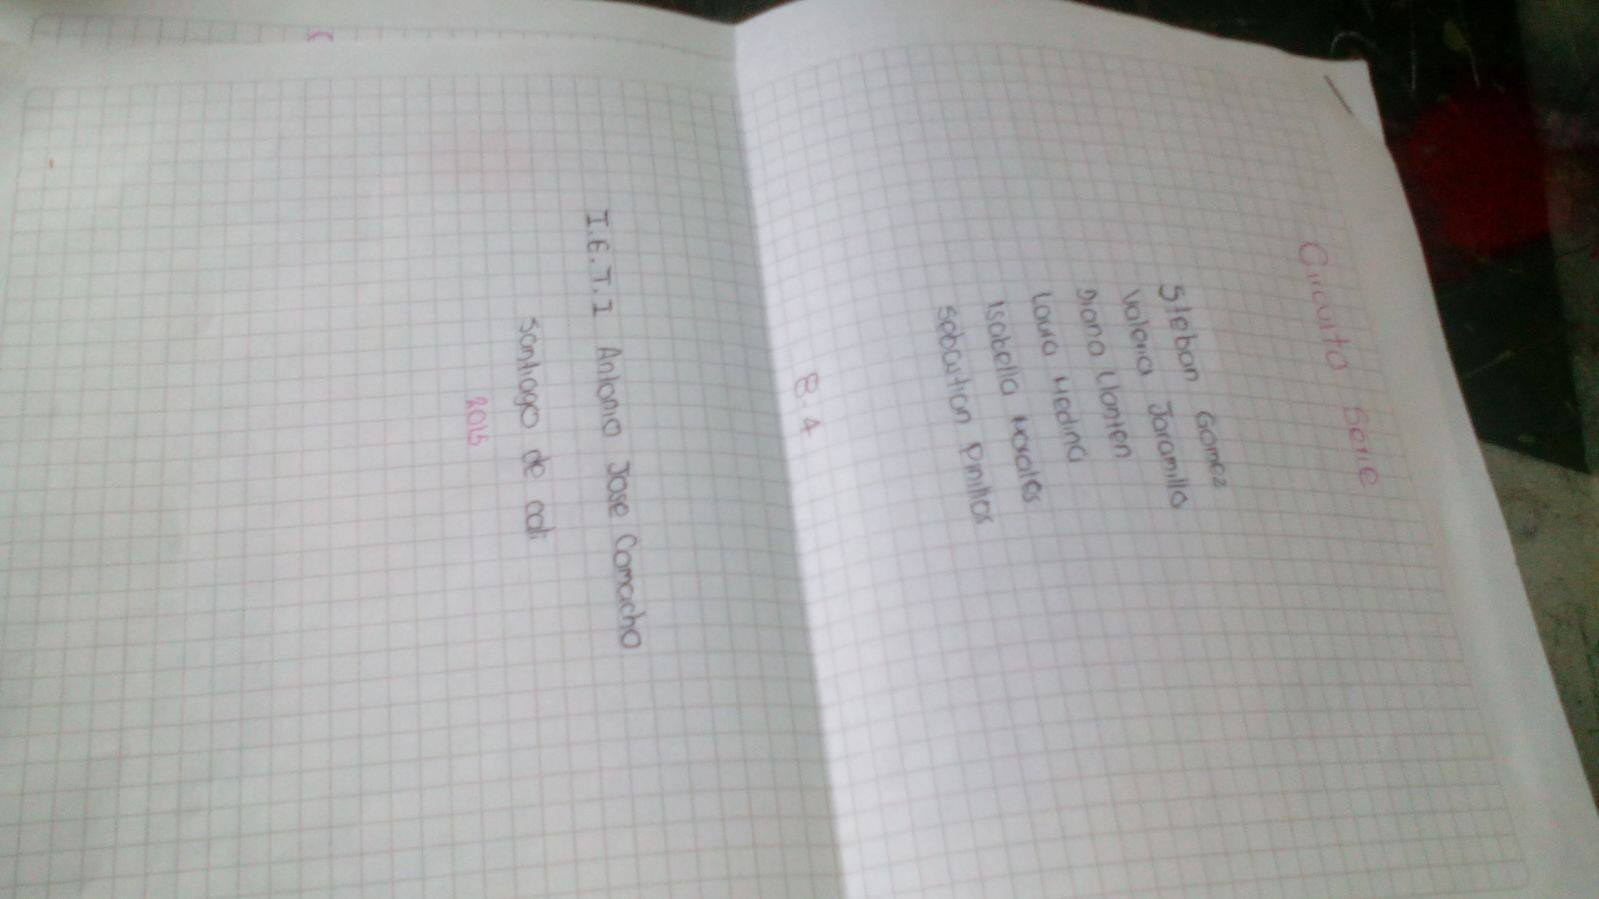 Circuito Serie
Steban Gomez
Valeria Jaramillo
Diana Llanten
Laura Medina
Isabella Morales
Sebastian Pinillos
8.4
I.E.T.I Antonio Jose Camacho
Santiago de cali
2015